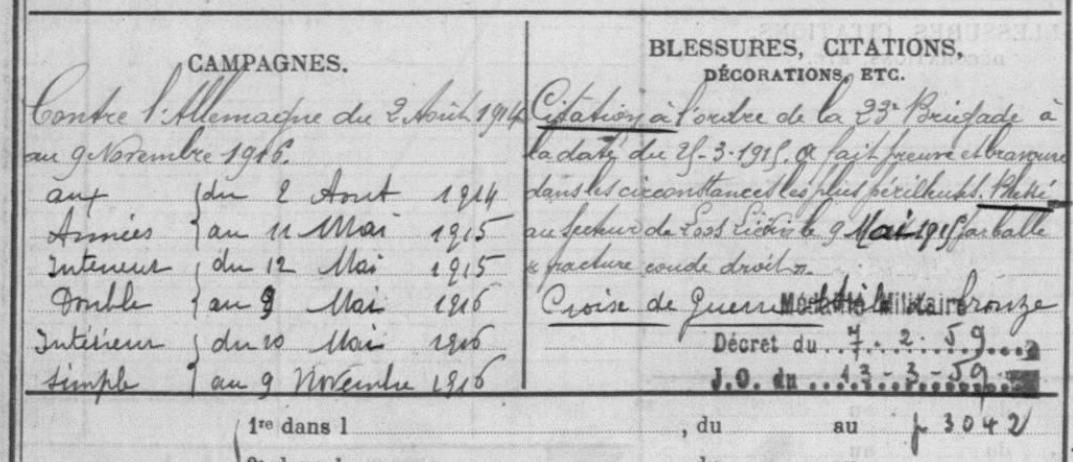 CAMPAGNES.
Contre l'Allemagne du 2 Août 1914
au 9 Novembre 1916.
aux } du 2 Aout 1914
Armées } au 11 Mai 1915
Intérieur } du 12 Mai 1915
Double } au 9 Mai 1916
Intérieur } du 10 Mai 1916
simple } au 9 Novembre 1916
BLESSURES, CITATIONS,
DÉCORATIONS, ETC.
Citation à l'ordre de la 23e Brigade à
la date du 25-3-1915. a fait preuve et bravoure
dans les circonstances les plus périlleuses. Blessé
au secteur de Loos Liévin le 9 Mai 1915 par balle
"fracture coude droit".
Croix de Guerre bronze
Médaille Militaire
Décret du 7-2-59
J.O. du 13-3-59
1re dans l , du au p 3042